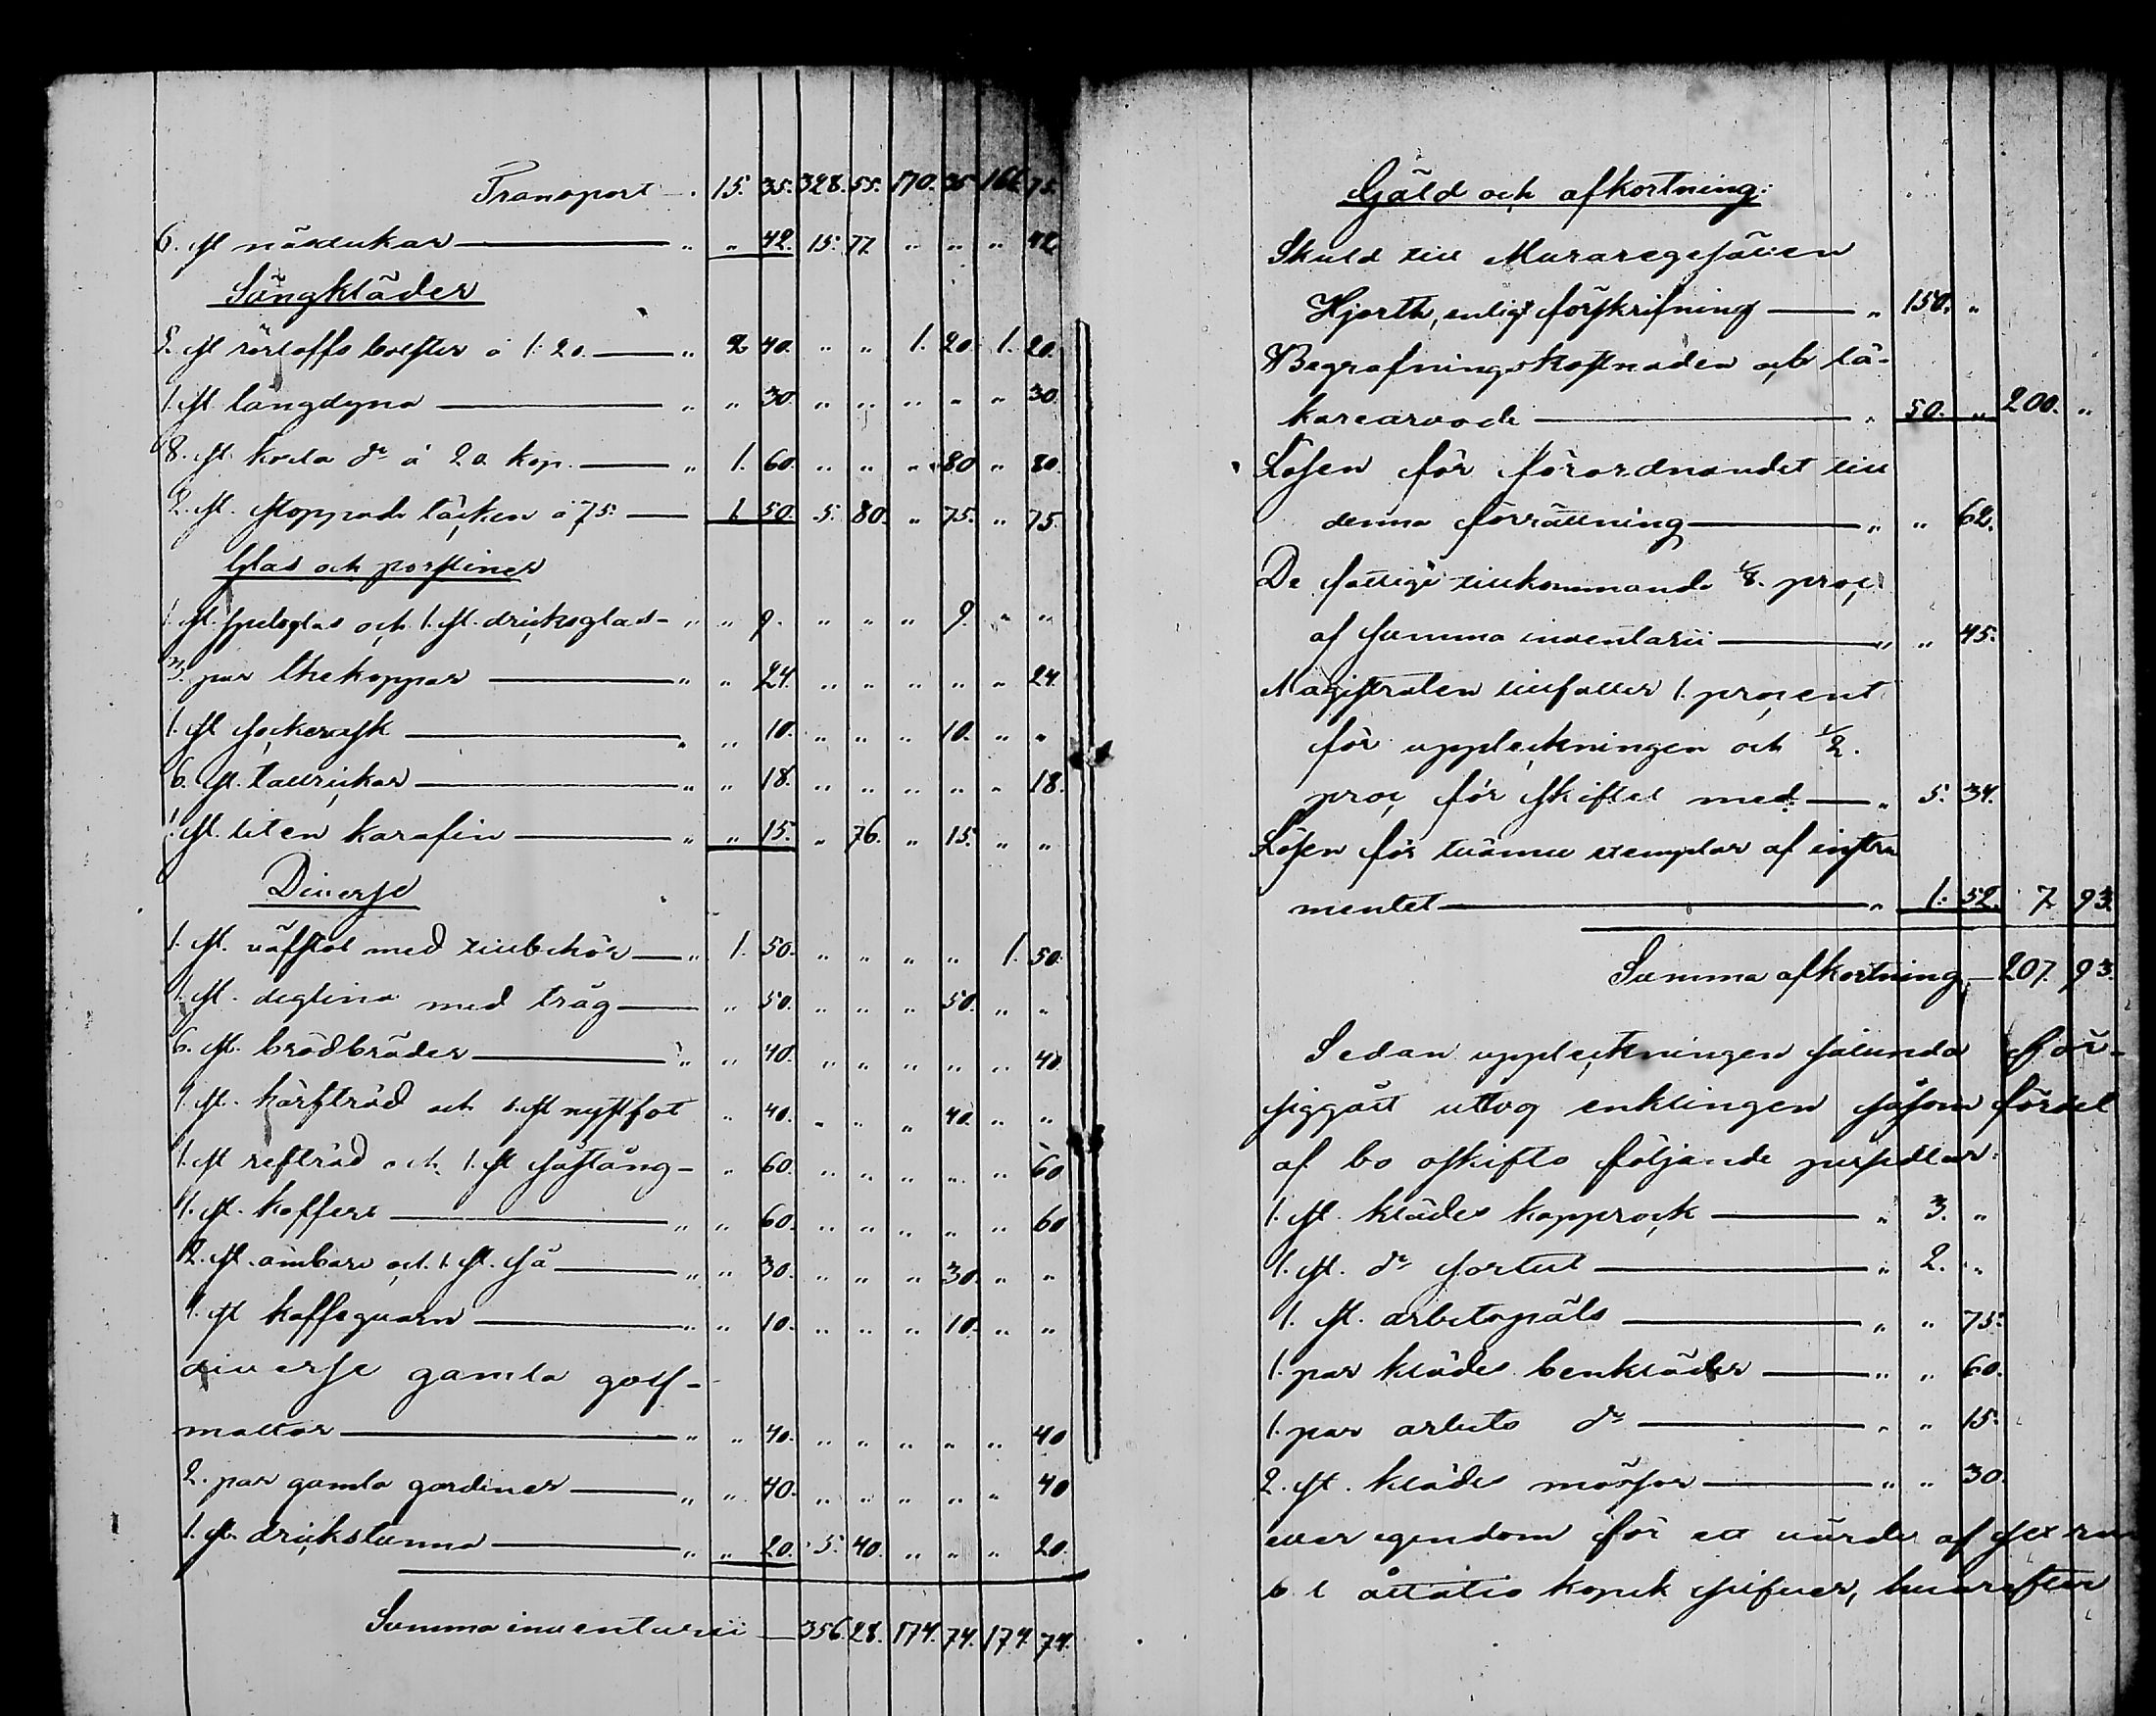 Transport 15. 35. 328. 55. 170. 35 166 75.
6. st näsdukar " " 42. 15. 77 " " " 42
Sängkläder
2. st bolster à 1. 20. " 2 40. " " 1. 20. 1. 20.
1. st långdyna " " 30. " " " " " 30.
8. st. korta do à 20. kop. " 1. 60. " " " 80 " 80.
2. st. stoppade täcken à 75. 1. 50. 5. 80. " 75. " 75.
Glas och porsliner
1. st. spelglas och 1. st. dricksglas " " 9. " " " 9. " "
3. par thekoppar " " 24. " " " " " 24.
1. st sockerask " " 10. " " " 10. " "
6. st. tallrickar " " 18. " " " " " 18.
1. st. liten karafin " " 15. " 76. " 15. " "
Diverse
1. st. väfstol med tillbehör " 1. 50. " " " " 1. 50.
1. st. deglina med tråg " 50. " " " 50. " "
6. st. brödbräder " " 40. " " " " " 40
1. st. härfträd och 1. st nystfot " 40. " " " 40. " "
1. st refträd och 1. st såstång " 60. " " " " " 60
1. st. koffert " " 60. " " " " " 60
2. st. ämbare och 1. st. så " " 30. " " " 30. " "
1. st kaffeqvarn " " 10. " " " 10. " "
diverse gamla golf-
mattor " " 40. " " " " " 40
2. par gamla gardiner " " 40. " " " " " 40
1. st. drickstunna " " 20. 5. 40. " " " 20.
Summa inventarii 356. 28. 174. 74. 174. 74.
Gäld och afkortning:
Skuld till Muraregesällen
Hjorth, enligt förskrifning " 150. "
Begrafningskostnaden och lä-
karearvode " 50. " 200. "
Lösen för förordnandet till
denna förrättning " " 62.
De fattige tillkommande 1/8. proc
af summa inventarii " " 45.
Magistraten tillfaller 1. procent
för uppteckningen och 1/2.
proc för skiftet med " 5. 34.
Lösen för tvänne exemplar af instru
mentet " 1. 52. 7 93.
Summa afkortning 207. 93.
Sedan uppteckningen sålunda för-
siggått uttog enklingen såsom fördel
af bo oskifto följande persedlar:
1. st. klädes kapprock " 3. "
1. st. do sortut " 2. "
1. st. arbetspäls " " 75.
1. par klädes benkläder " " 60.
1. par arbets do " " 15.
2. st. klädes mössor " " 30.
eller egendom för ett värde af sex ru
bel åttatio kopek silfver, hvarefter